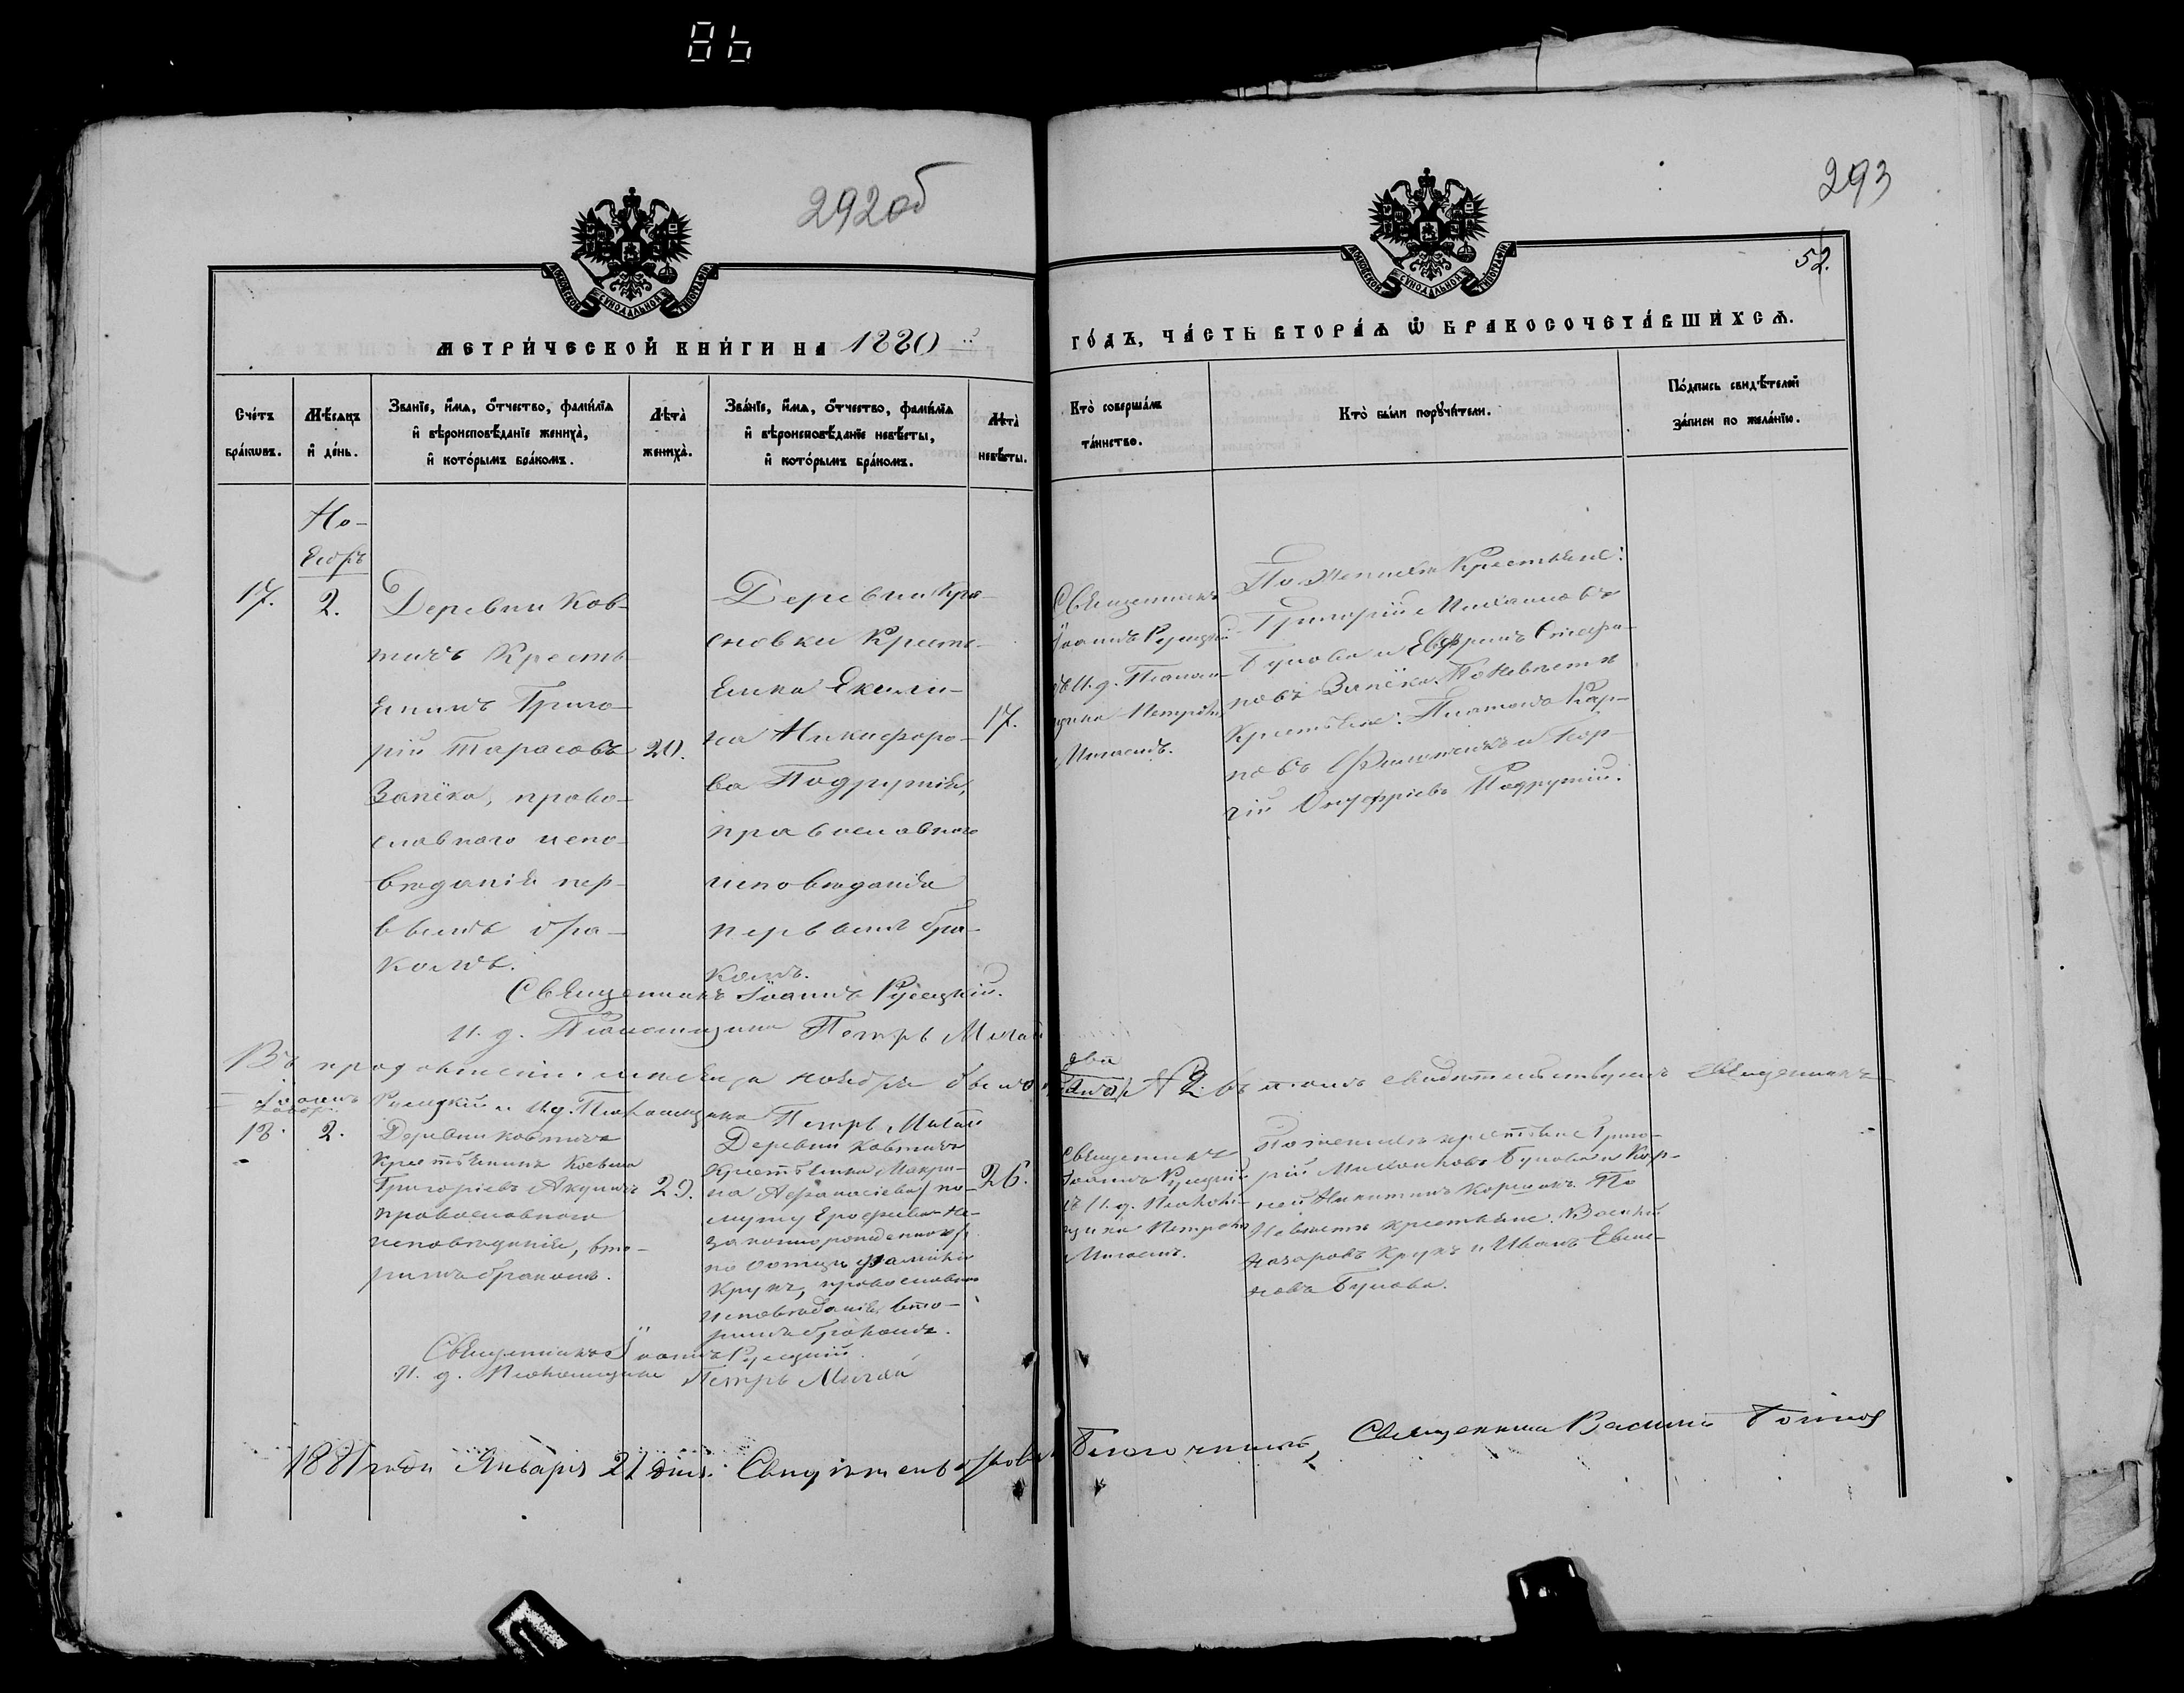 292 об
293
52.
МЕТРИ́ЧЕСКОЙ КНИ́ГИ НА 1880 й
ГО́ДЪ, ЧА́СТЬ ВТОРА́Ѧ Ѡ҆ БРАКОСОЧЕТА́ВШИХСѦ.
Сче́тъ бра́кѡвъ.
Мѣ́сѧцъ и҆ де́нь.
Зва́нїе, и҆́мѧ, ѻ҆́тчество, фамѝлїѧ и҆ вѣроисповѣ́данїе женихà, и҆ кото́рымъ бра́комъ.
Лѣ́та женихà.
Зва́нїе, и҆́мѧ, ѻ҆́тчество, фамѝлїѧ и҆ вѣроисповѣ́данїе невѣ́сты, и҆ кото́рымъ бра́комъ.
Лѣ́та невѣ́сты.
Кто̀ соверша́лъ та́инство.
Кто̀ бы́ли порꙋчи́тели.
По́дпись свидѣ́телей за́писи по жела́нїю.
Но-
ябрь
17.
2.
Деревни Ков-
тичъ Кресть-
янинъ Григо-
рій Тарасовъ
Запёка, право-
славнаго испо-
вѣданія пер-
вымъ бра-
комъ.
20.
Деревни Кра-
сновки Кресть-
янка Екате-
на Никифоро-
ва Подружія,
православнаго
исповѣданія
первымъ бра-
комъ.
17.
Священникъ
Іоаннъ Русецкій
съ И. д. Псалом-
щика Петромъ
Мигаемъ.
По женихѣ Крестьяне:
Григорій Михаиловъ
Бунова и Евфремъ Стефа-
новъ Запёка. По невѣстѣ
Крестьяне: Платонъ Кар-
повъ и Гео-
гій Онуфріевъ Подружій.
Священникъ Іоаннъ Русецкій.
И. д. Псаломщика Петръ Мигай
Въ продолженіи мѣсяца ноября было два
№ 2. въ томъ свидѣтельствуемъ Священникъ
Іоаннъ Русецкій и И.д. Псаломщика Петръ Мигай
18.
2.
Деревни Ковтичъ
Крестьянинъ
Григоріевъ Акуличъ
православнаго
исповѣданія, вто-
рымъ бракомъ.
29.
Деревни Ковтичъ
крестьянка Макри-
на Афанасіева по
мужу Ерофеева не-
законнорожденная
по отцу фамиліи
Крукъ, православнаго
исповѣданія, вто-
рымъ бракомъ.
26.
Священникъ
Іоаннъ Русецкій
съ И. д. Псалом-
щика Петромъ
Мигаемъ.
По женихѣ крестьяне Григо-
рій Михаиловъ Бунова и Кор-
ней Никитинъ Коршакъ. По
Невѣстѣ крестьяне: Василій
Назаровъ Крукъ и Иванъ
Бунова.
Священникъ Іоаннъ Русецкій
И. д. Псаломщика Петръ Мигай
1881 года Января 21 дня. Свидѣтельствовалъ Благочинный, Священникъ Василій